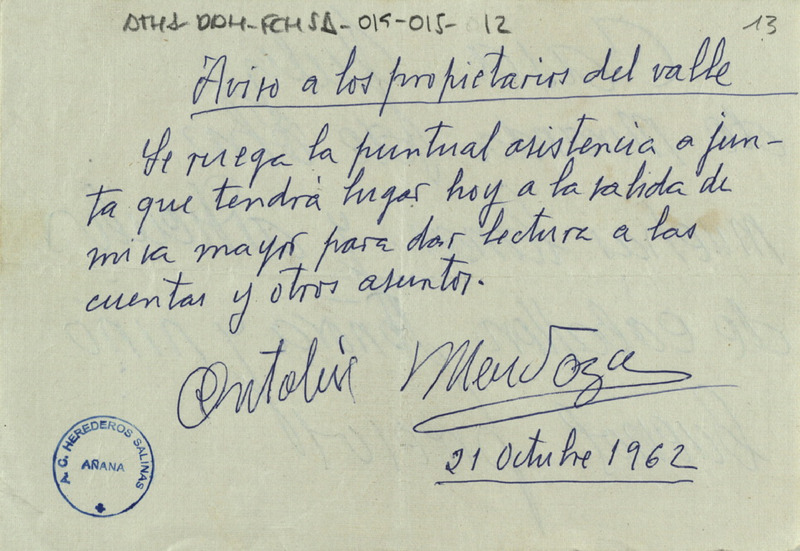 ATHA-DDH-FCHSA-015-015-12
13
Aviso a los propietarios del valle
Se ruega la puntual asistencia a jun-
ta que tendrá lugar hoy a la salida de
misa mayor para dar lectura a las
cuentas y otros asuntos.
Antolin Mendoza
21 Octubre 1962
A. C. HEREDEROS SALINAS
AÑANA